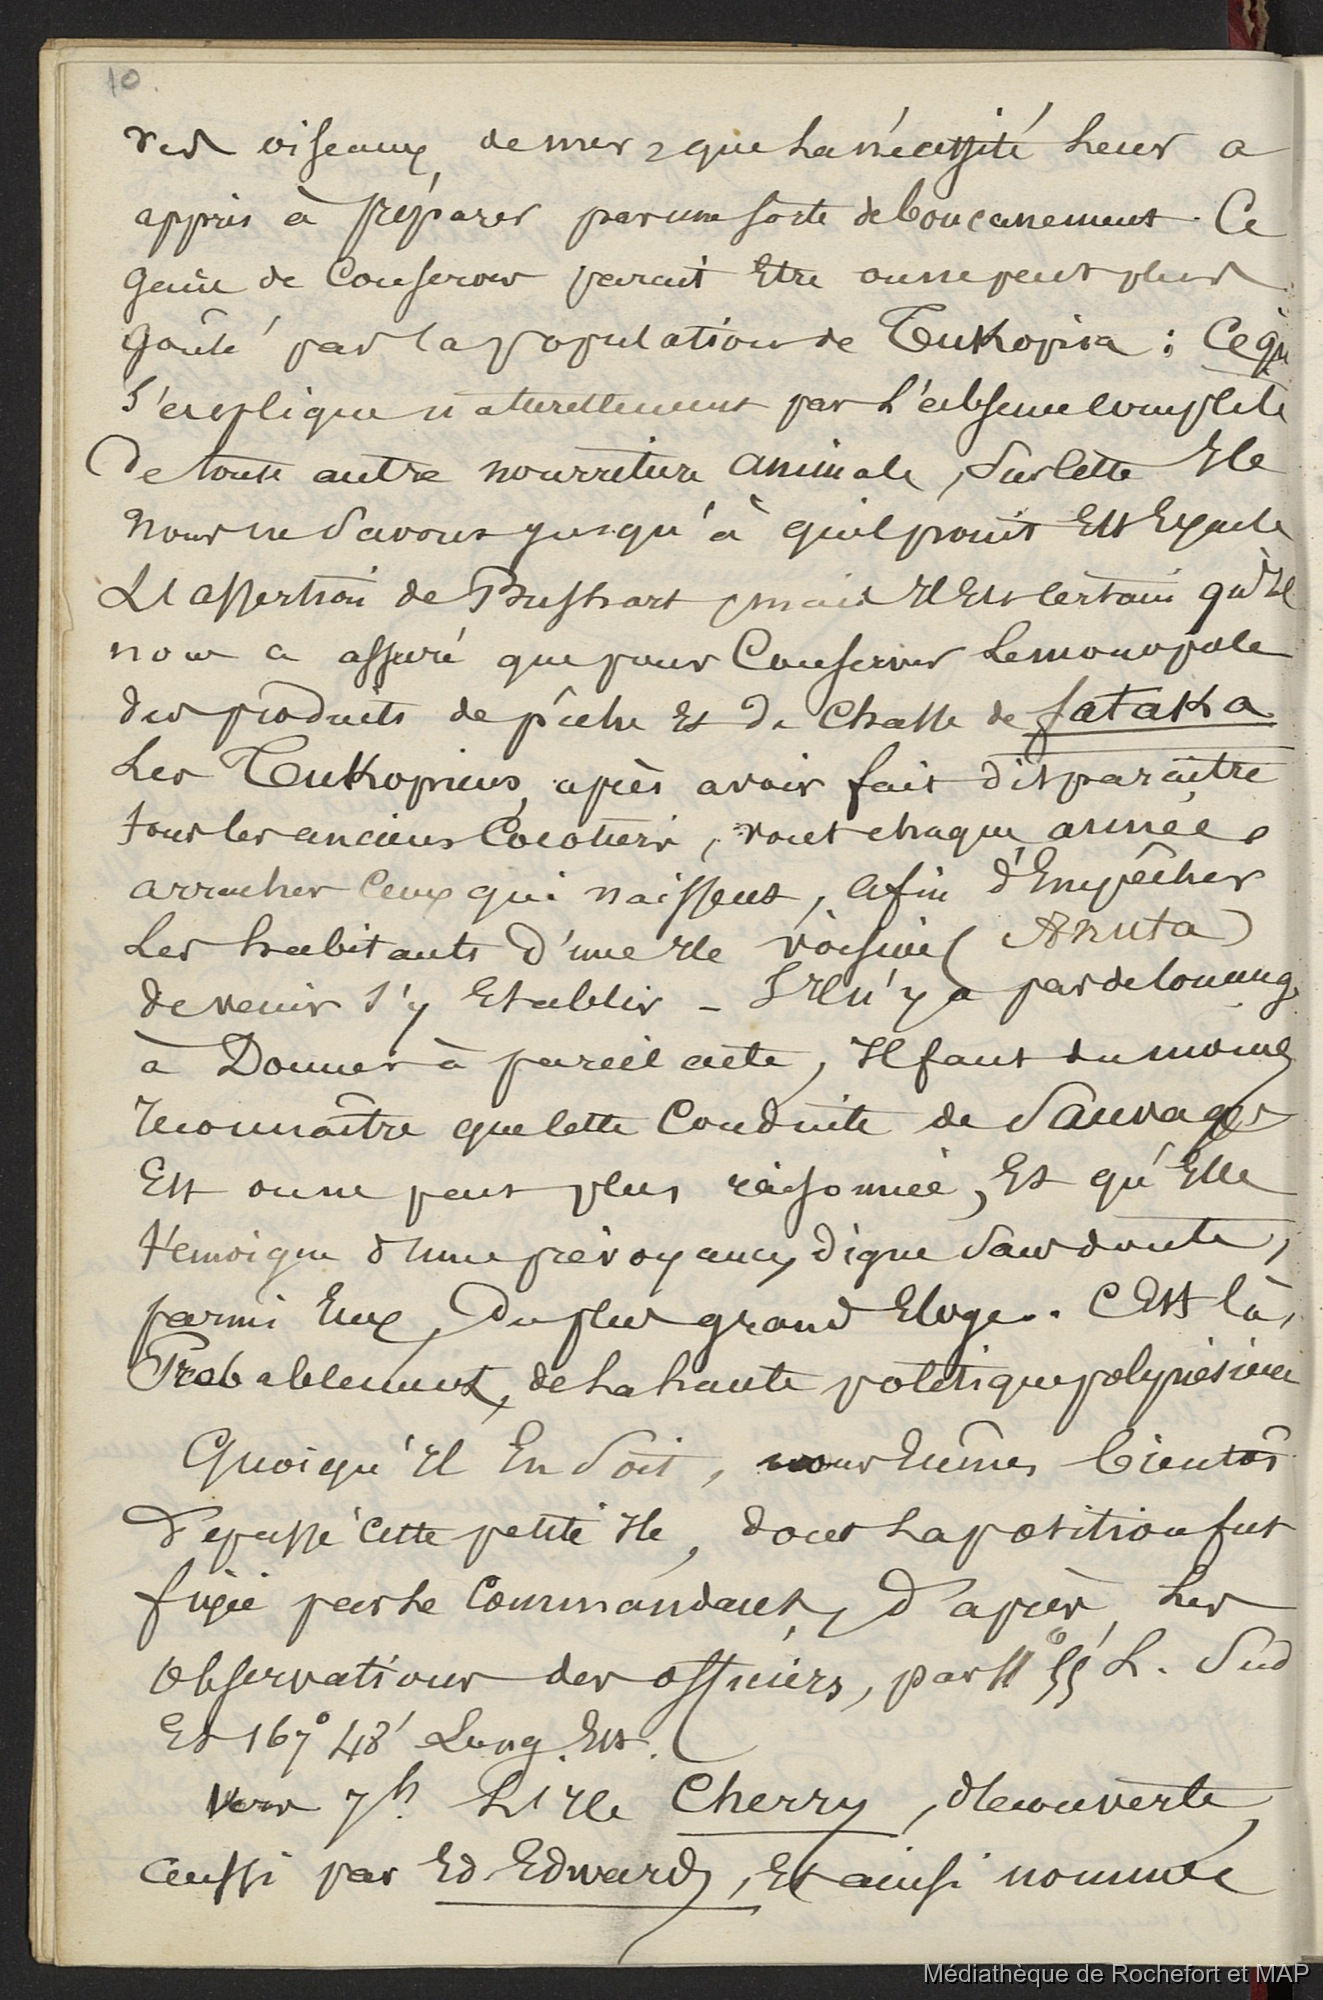 10.
des oiseaux de mer, que la nécessité leur a
appris à préparer par une sorte de boucanement. Ce
genre de conserver parait Etre on ne peut plus
goûté par la population de Tukopia : Ce qui
s'explique naturellement par l'absence complète
De toute autre nourriture animale, sur cette Ile
nous ne savons jusqu'à quel point Est Exacte
L'assertion de Bushart, mais Il Est certain qu'Il
nous a assuré que pour Conserver le monopole
des produits de pêche Et de chasse de fataka
Les Tukopiens, après avoir fait disparaître
tous les anciens Cocotiers, vont chaque année,
arracher Ceux qui naissent, afin d'Empêcher
Les habitants d'une Ile voisine (Anuta)
de venir s'y Etablir - S'Il n'y a pas de louange
à Donner à pareil acte, Il faut du moins
reconnaître que cette Conduite de Sauvages
Est on ne peut plus raisonnée, Et qu'Elle
témoigne d'une prévoyance, digne sans doute,
parmi Eux, Du plus grand Eloge. C'Est là,
Probablement, de la haute politique polynésienne
Quoiqu'Il En soit, nous Eûmes bientôt
Dépassé cette petite Ile, dont la position fut
fixée par le Commandant, D'après Les
observations des officiers, par 11° 55' L. Sud
Et 167° 48' Long. Est.
Vers 7h. L'Ile Cherry, découverte
aussi par Ed. Edwards, Et ainsi nommée
Médiathèque de Rochefort et MAP